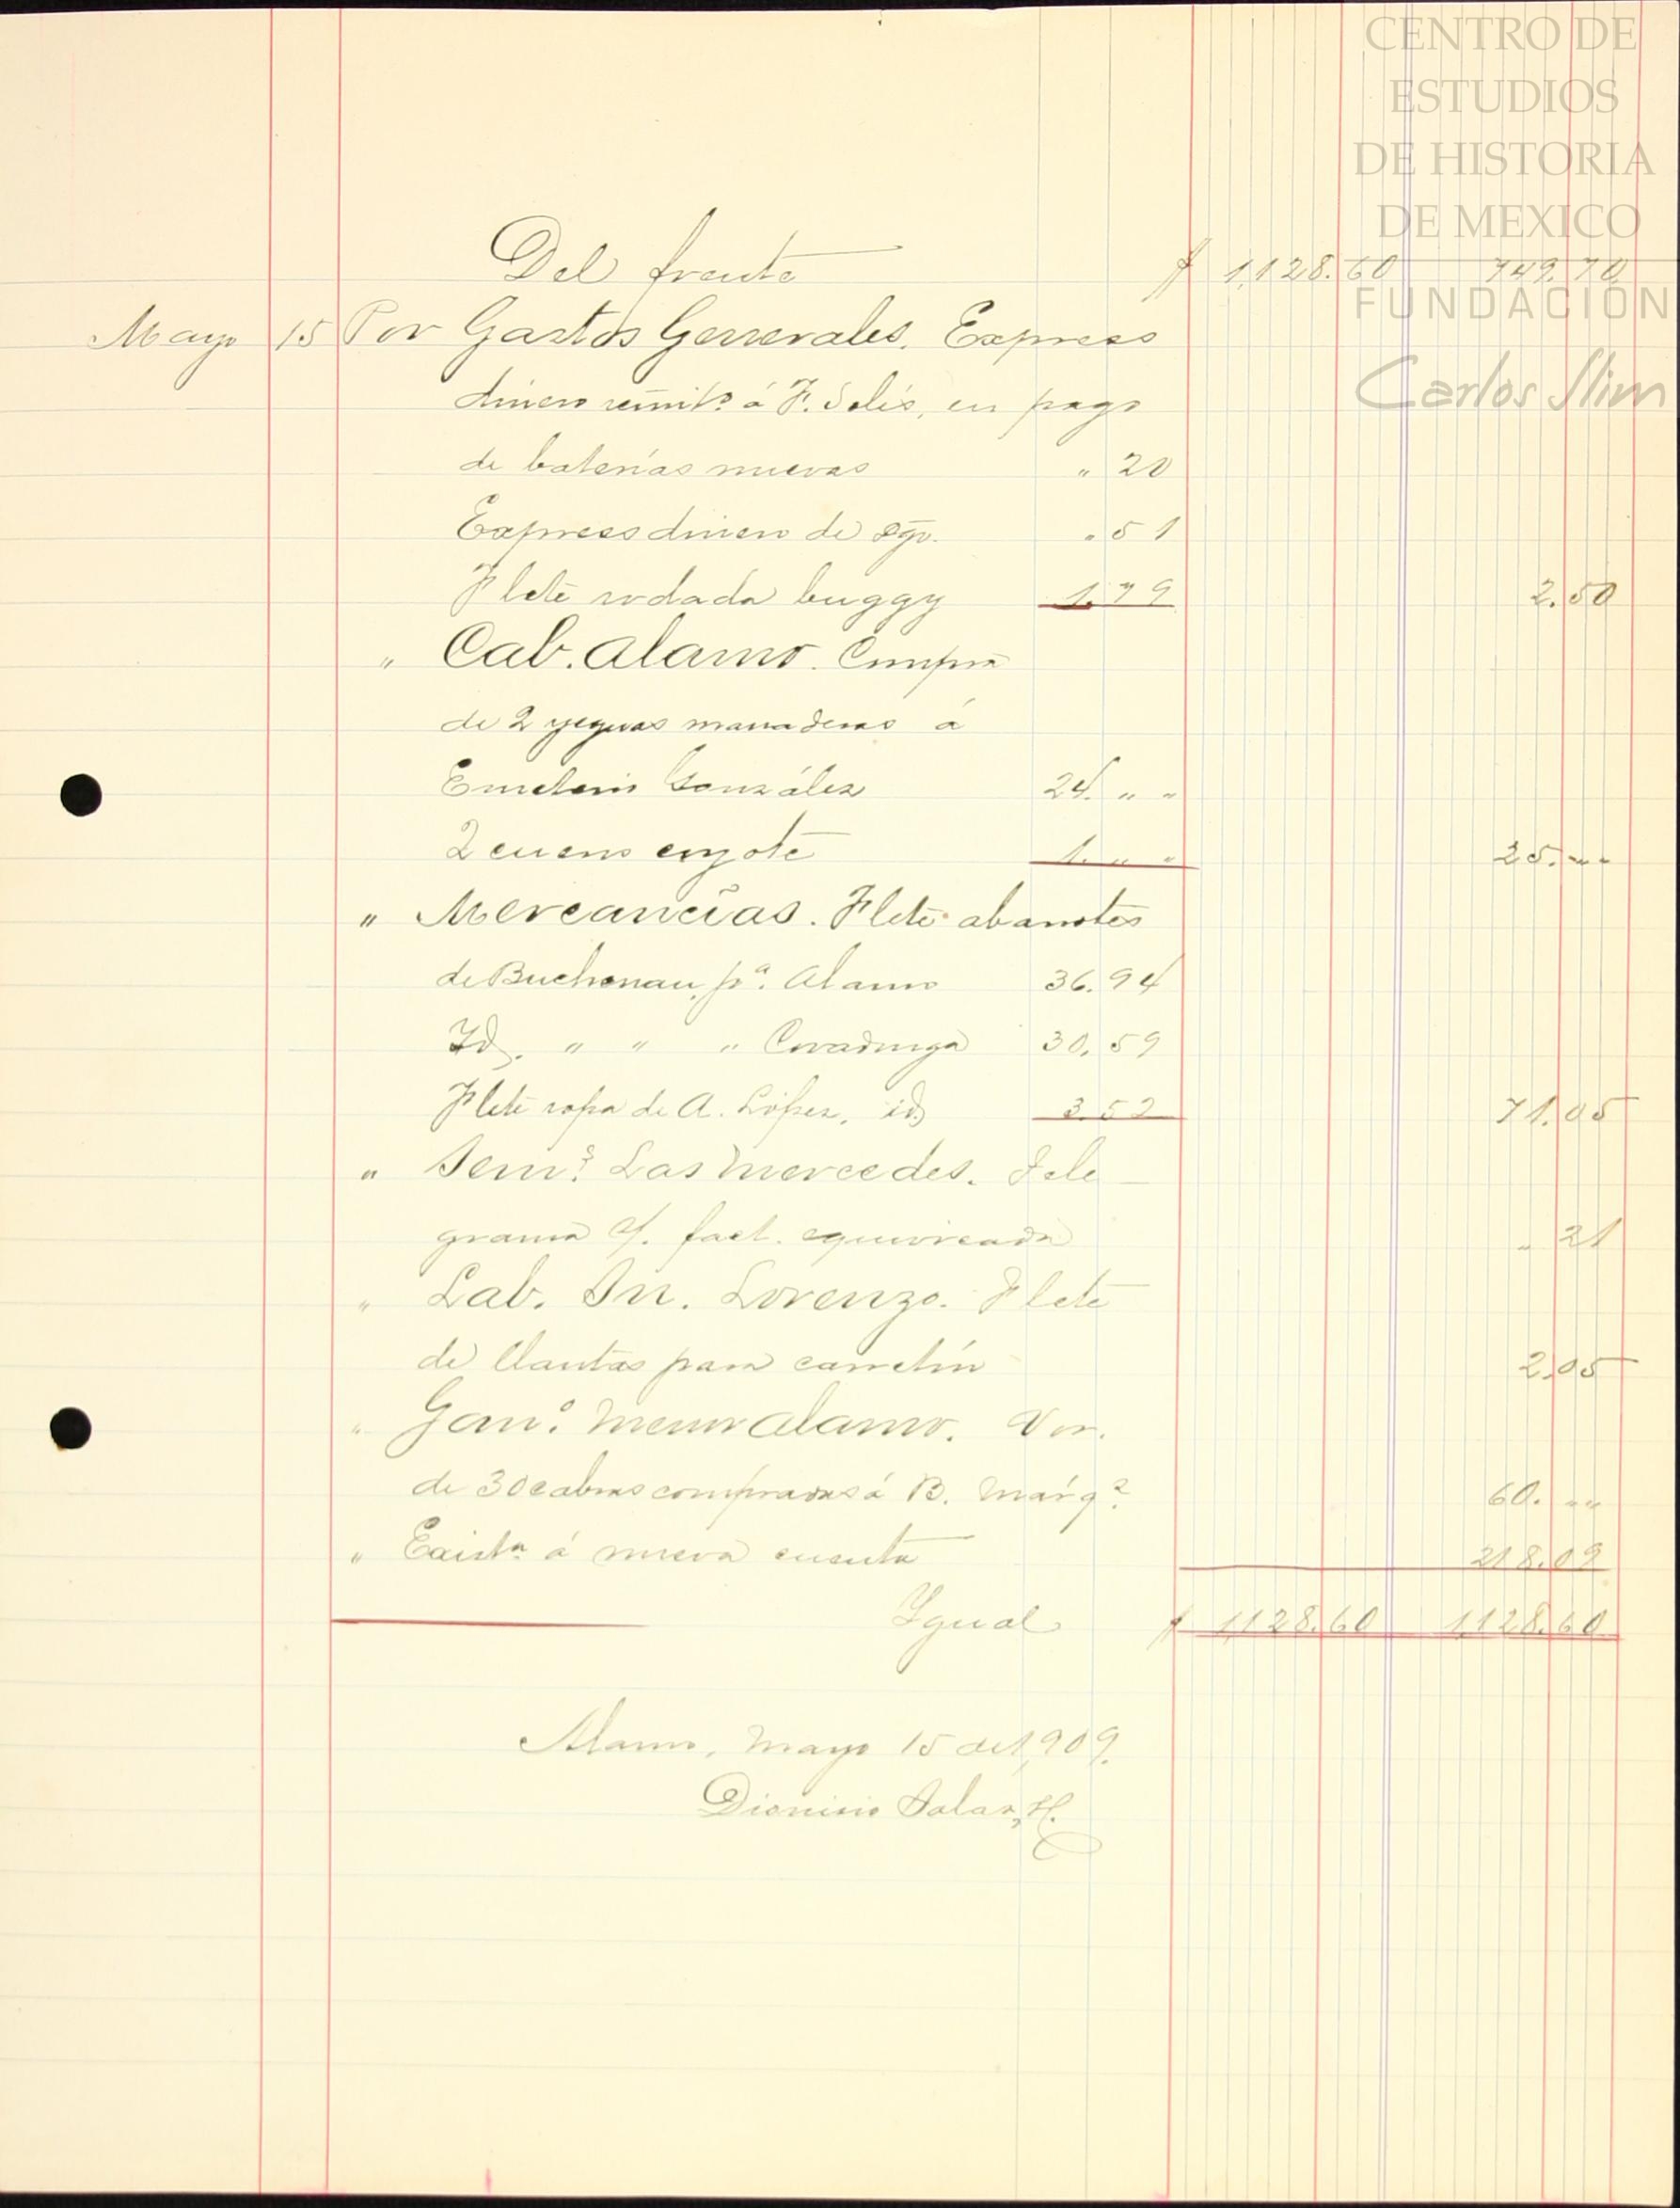 CENTRO DE
ESTUDIOS
DE HISTORIA
DE MEXICO
FUNDACIÓN
Carlos Slim
Del frente $ 1,128.60 749.70
Mayo 15 Por Gastos Generales. Express
dinero remit.º á F. Solís, en pago
de baterías nuevas " 20
Express dinero de Sgo. " 51
Flete rodada buggy 1.79 2.50
" Cab. Alamo. Compra
de 2 yeguas manaderas á
Emeterio González 24. " "
2 cueros coyote 1. " " 25. " "
" Mercancías. Flete abarrotes
de Buchenau, pª. Alamo 36.94
Id. " " " Covadonga 30.59
Flete ropa de A. López, id. 3.52 71.05
" Sem.s Las Mercedes. Tele-
grama s/. fact. equivocada " 21
" Lab. Sn. Lorenzo. Flete
de llantas para carretín 2.05
" Gan.º Menor Alamo. Vor.
de 30 cabras compradas á B. Márq.z 60. " "
" Exist.a á nueva cuenta 218.09
Igual $ 1,128.60 1,128.60
Alamo, Mayo 15 de 1,909.
Dionisio Salas, H.